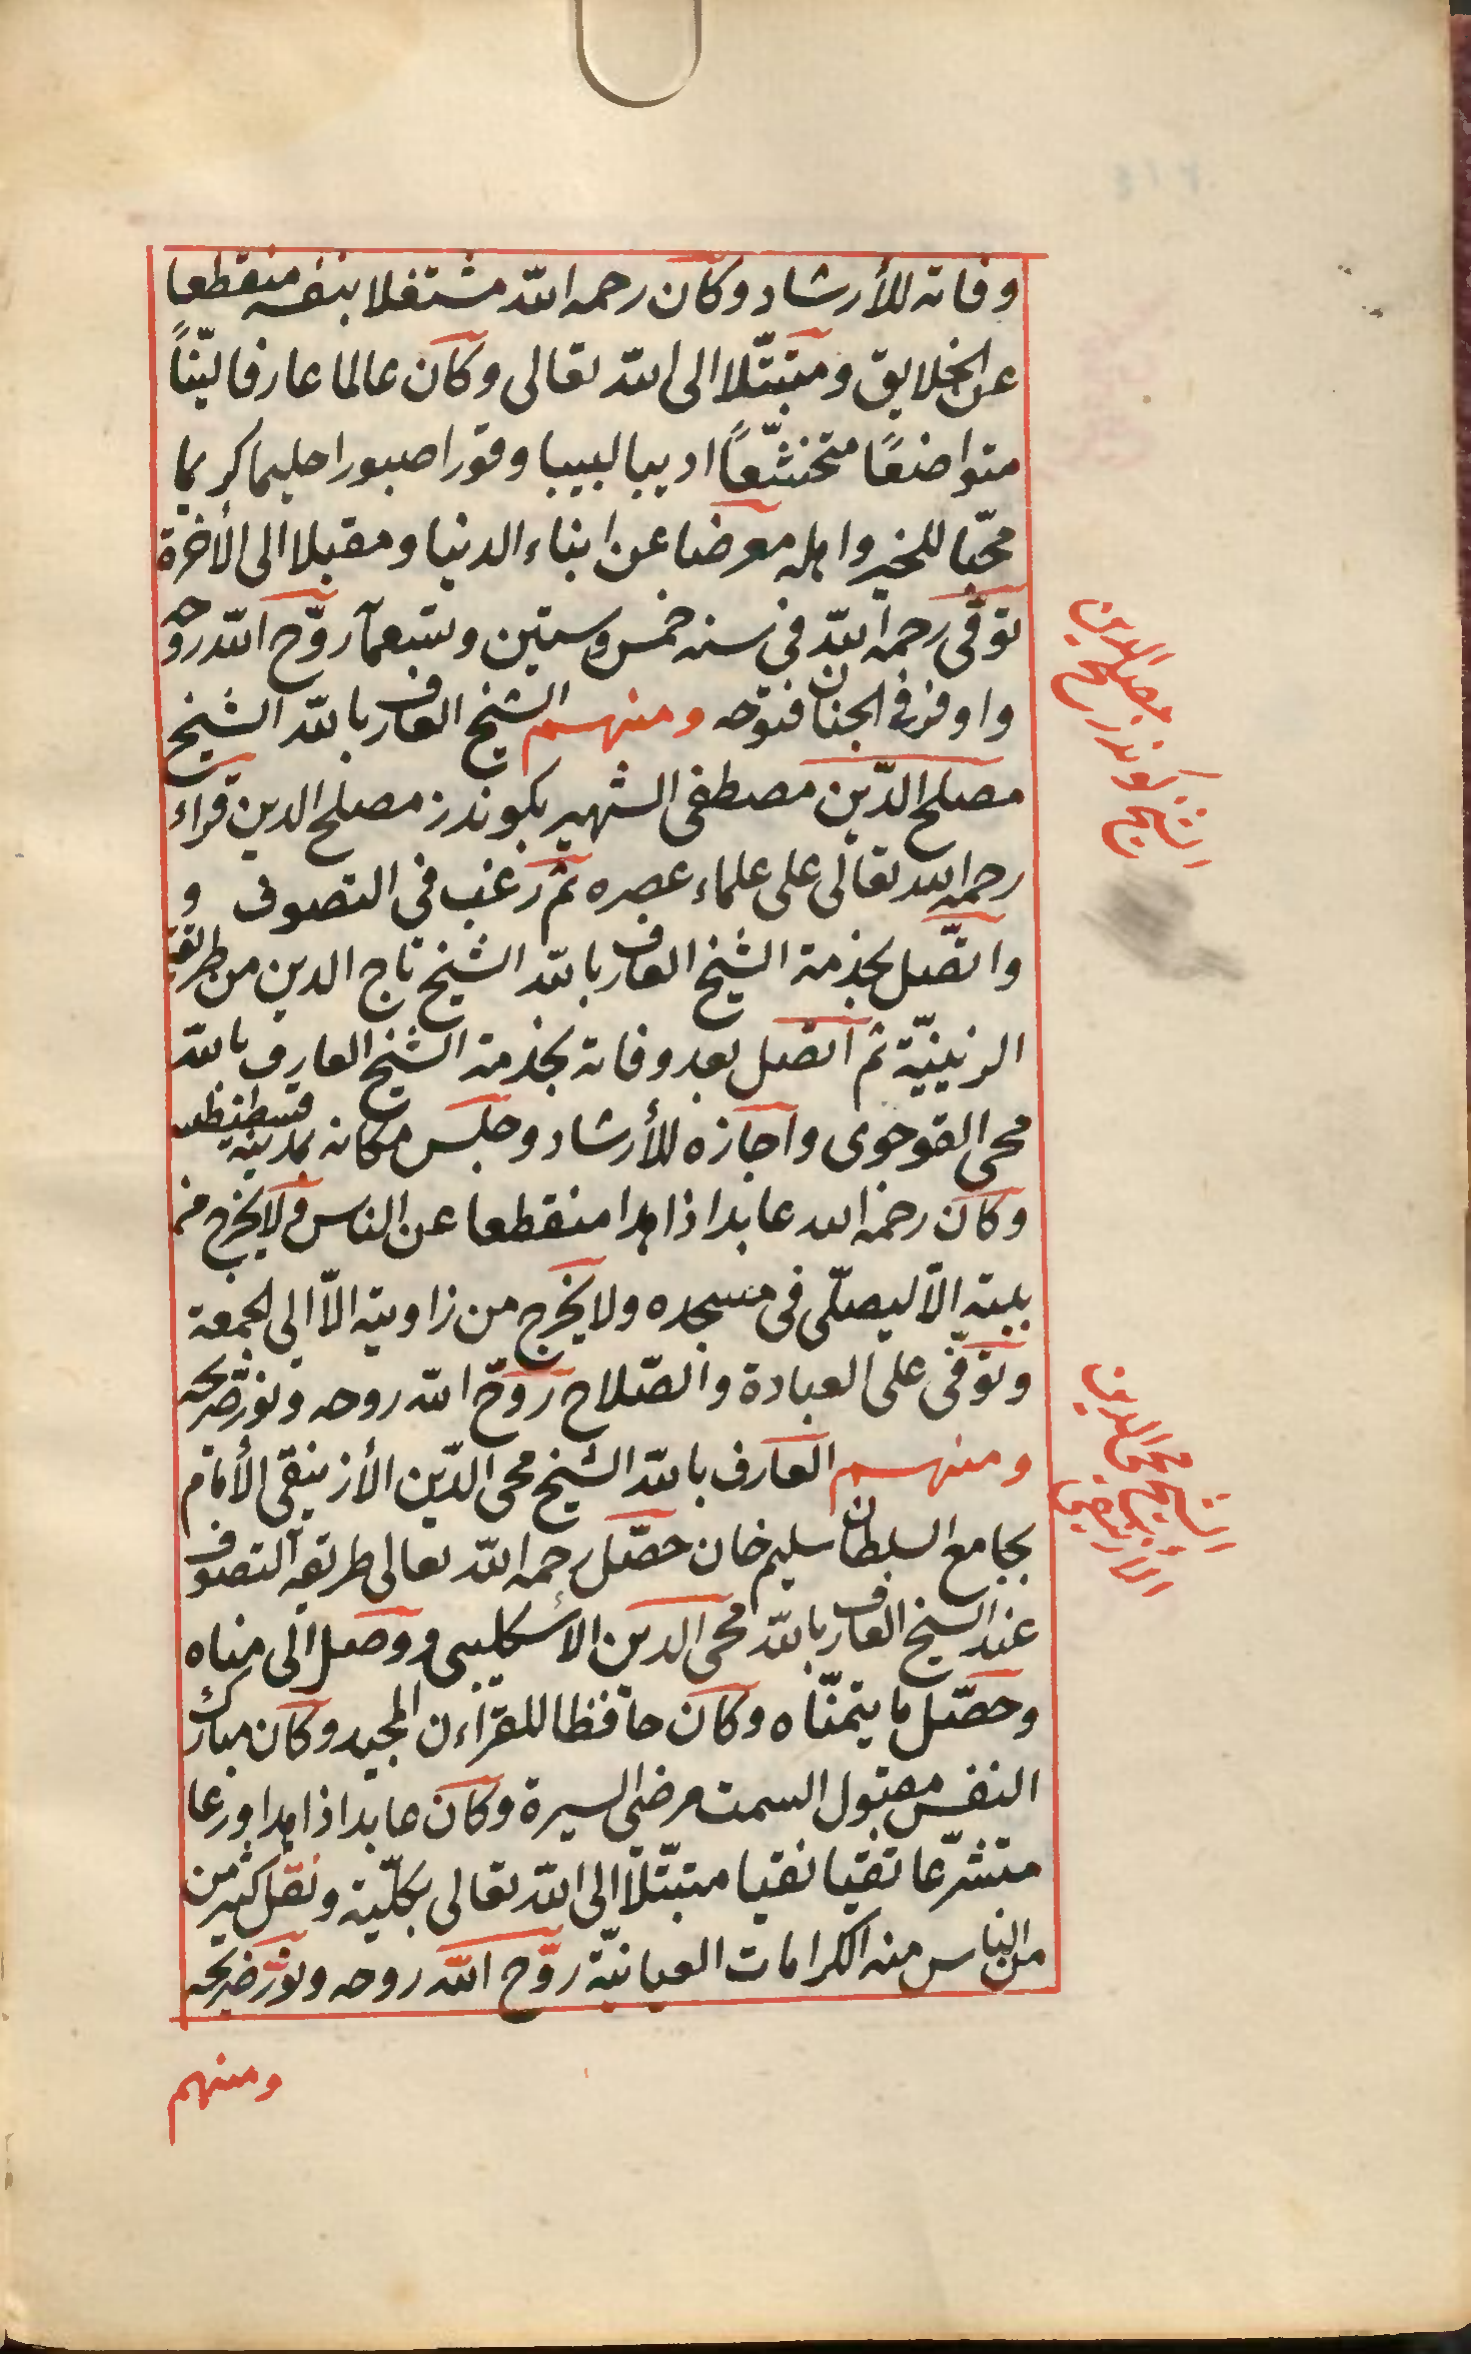 وفاته للأرشاد وكان رحمه الله مشتغلا بنفسه منقطعا
عن الخلايق ومتبتّلا الى الله تعالى وكان عالما عارفا ليّناً
متواضعًا متخشّعاً اديبا لبيبا وقورا صبورا حليما كريما
محبّا للخير واهله معرضا عن ابناء الدنيا ومقبلا الى الأخرة
توفّى رحمه الله فى سنه خمس وستين وتسعمآ روّح الله روحه
واوفر فى الجنان فتوحه ومنهم الشيخ العارف بالله الشيخ
مصلح الدّين مصطفى الشهير بكوندز مصلح الدين قراء
رحمه الله تعالى على علماء عصره ثم رغب فى التصوف و
واتّصل بخذمة الشيخ العارف بالله الشيخ تاج الدين من طريقة
الزينيّة ثم اتصل بعد وفاته بخذمة الشيخ العارف بالله
محى القوجوى واجازه للأرشاد وجلس مكانه بمدينة قسطنطنيه
وكان رحمه الله عابدا ذاهدا منقطعا عن الناس ولا يخرج من
بيته الّا ليصلّى فى مسجده ولا يخرج من زاويته الّا الى الجمعة
وتوفّى على العبادة والصّلاح روّح الله روحه ونور ضريحه
ومنهم العارف بالله الشيخ محى الدّين الأزنيقى الأمام
بجامع السلطان سليم خان حصّل رحمه الله تعالى طريقه التصوف
عند الشيخ العارف بالله محى الدين الأسكليبى ووصل الى مناه
وحصّل ما يتمنّاه وكان حافظا للقرآءن المجيد وكان مبارك
النفس مقبول السمت مرضى السيرة وكان عابدا ذاهدا ورعا
متشرّعا تقيا نقيا متبتّلا الى الله تعالى بكلّيته ونقل كثير من
من الناس منه الكرامات العيانيّة روّح الله روحه ونوّر ضريحه
ومنهم
الشيخ كوندز مصلح الدين
الشيخ محى الدين
الأزنيقى